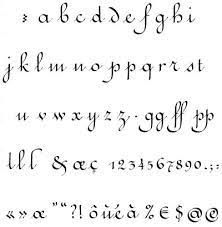 a b c d d e f g h i
j k l m n o p p q r r s t
u v w x y z z . g g ff pp
l l l & æ ç 1 2 3 4 5 6 7 8 9 0 . , :
« » œ " “ ? ! ô ü é à % € $ @ @